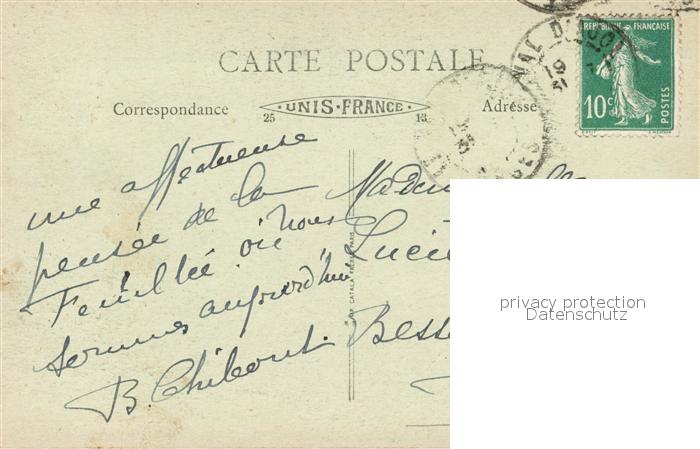 CARTE POSTALE
Correspondance
UNIS-FRANCE
25 13
Adresse
RÉPUBLIQUE FRANÇAISE
10c
POSTES
VAL D'AJOL
19
une affectueuse
pensée de la
Feuillée où nous
sommes aujourd'hui
B Chibout.
CATALA FRÈRES PARIS
privacy protection
Datenschutz